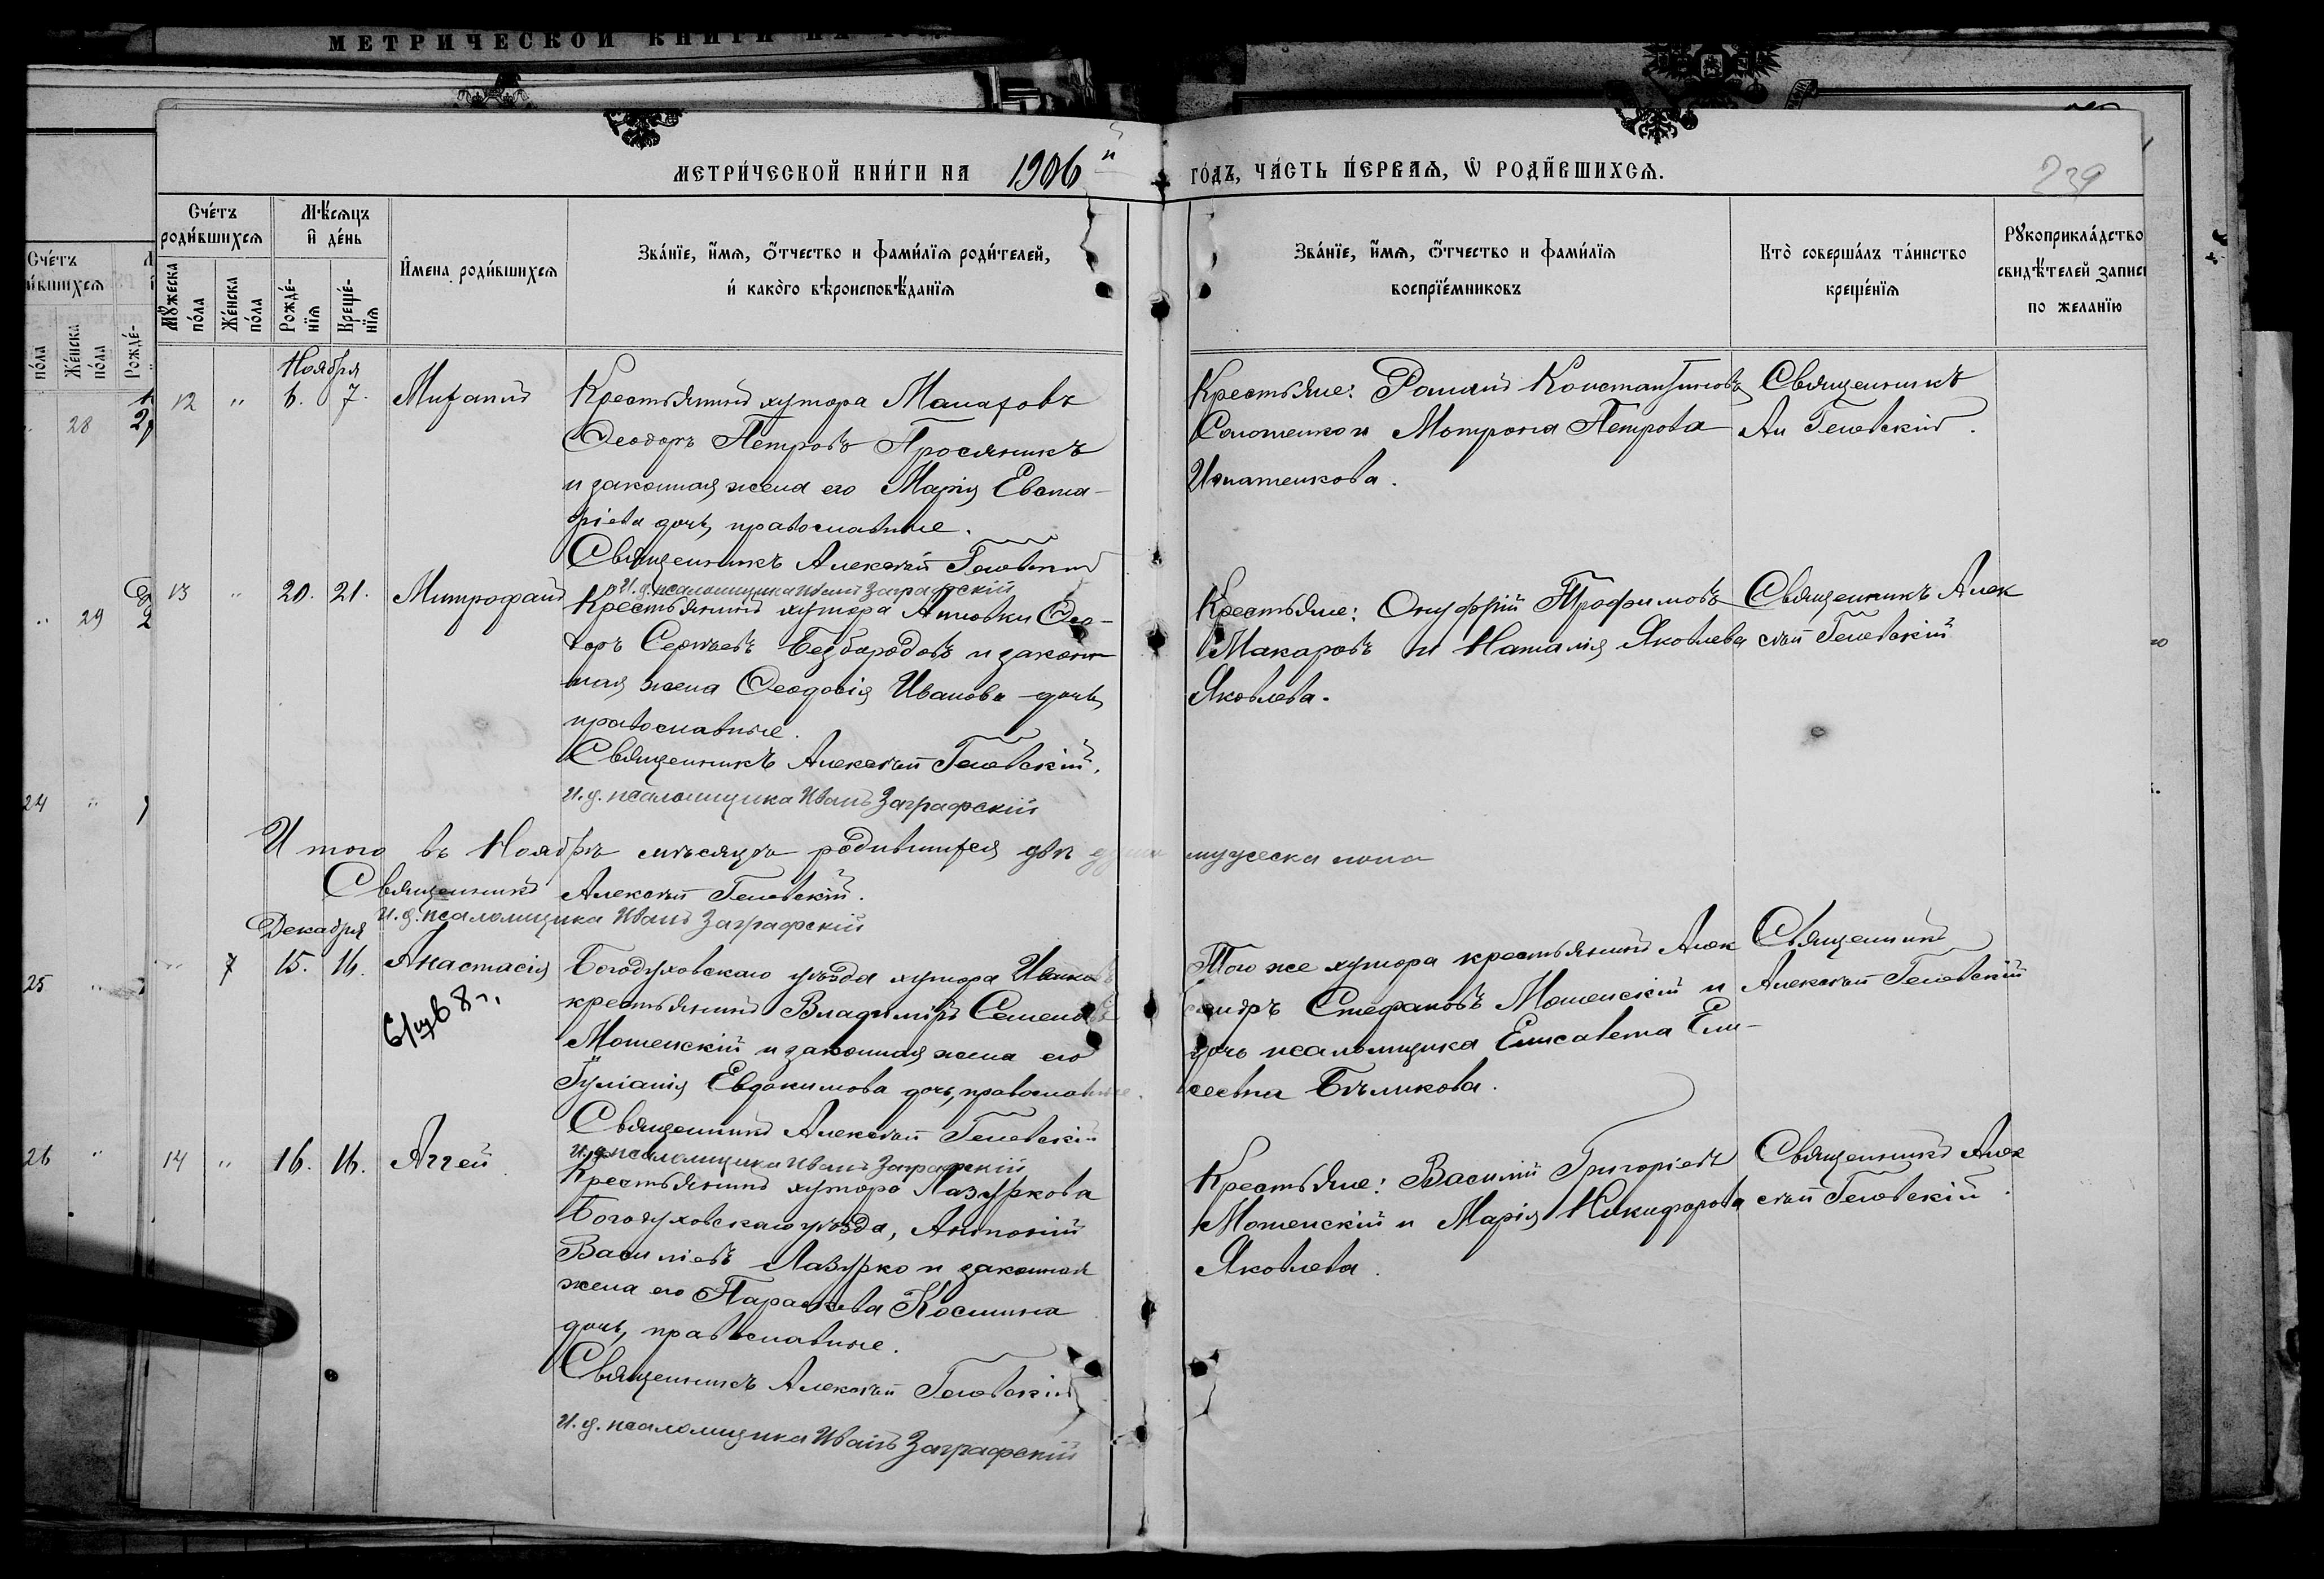 МЕТРИЧЕСКОЙ КНИГИ НА
МЕТРИ́ЧЕСКОЙ КНИ́ГИ НА 1906й ГО́ДЪ, ЧА́СТЬ ПЕ́РВАЯ, Ѡ РОДИ́ВШИХСЯ.
239
Сче́тъ роди́вшихся
Мꙋ́жеска по́ла
Же́нска по́ла
Мѣ́сяцъ и де́нь
Рожде́нїя
Креще́нїя
И҆мена роди́вшихся
Зва́нїе, и҆́мя, ѻ҆́тчество и фами́лїя роди́телей,
и҆ како́го вѣроисповѣ́данїя
Зва́нїе, и҆́мя, ѻ҆́тчество и фами́лїя
воспрїе́мниковъ
Кто̀ соверша́лъ та́инство
креще́нїя
Рꙋкоприкла́дство
свидѣ́телей запис
по желанїю
Ноября
12 " 6. 7. Михаилъ
Крестьянинъ хутора
Ѳеодоръ Петровъ Просяникъ
и законная жена его Марія Евста-
фіева дочь, православные.
Священникъ Алексѣй
И. д. псаломщика Иванъ Заграфскій
Крестьяне:
и Мотрона Петрова
Игнатенкова.
Священникъ
13 " 20. 21. Митрофанъ
Крестьянинъ хутора Ѳео-
доръ Сергѣевъ Безбородовъ и закон-
ная жена Ѳеодосія Иванова дочь,
православные.
Священникъ Алексѣй
И. д. псаломщика Иванъ Заграфскій
Крестьяне: Онуфрій Трофимовъ
Макаровъ и Наталія Яковлева
Яковлева.
Священникъ Алек
сѣй
Итого въ Ноябрѣ мѣсяцѣ родившихся двѣ души мужеска пола
Священникъ Алексѣй
И. д. псаломщика Иванъ Заграфскій
Декабря
" 7 15. 16. Анастасія
Богодуховскаго уѣзда хутора
крестьянинъ Владиміръ Семеновъ
Мошенскій и законная жена его
Іуліанія Евдокимова дочь, православные.
Священникъ Алексѣй
И. д. псаломщика Иванъ Заграфскій
Того же хутора крестьянинъ Алек
сандръ Стефановъ Мошенскій и
дочь псаломщика Елисавета Ели-
сеевна Бѣликова.
Священникъ
Алексѣй
14 " 16. 16. Аггей
Крестьянинъ хутора Лазуркова
Богодуховскаго уѣзда, Антоній
Васильевъ Лазурко и законная
жена его Параскева Космина
дочь, православные.
Священникъ Алексѣй
И. д. псаломщика Иванъ Заграфскій
Крестьяне: Василій Григорьевъ
Мошенскій и Марія Никифорова
Яковлева.
Священникъ Алек
сѣй
28
29
24
25
26